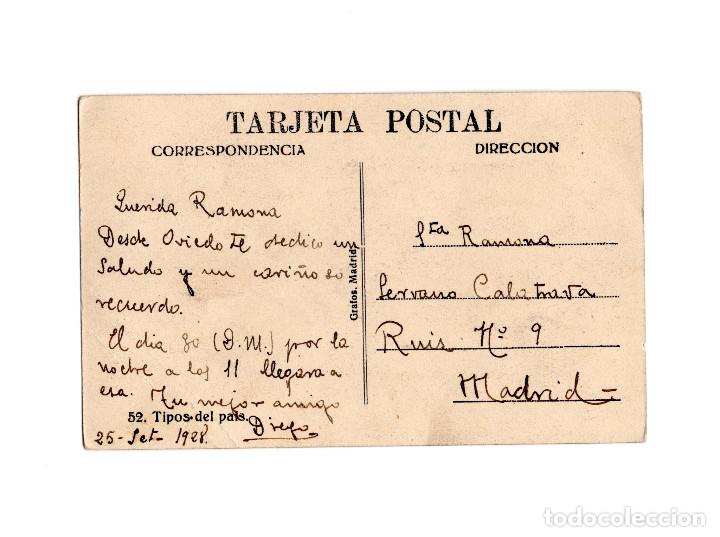 TARJETA POSTAL
CORRESPONDENCIA
DIRECCION
Querida Ramona
Desde Oviedo te dedico un
saludo y un cariñoso
recuerdo.
El dia 30 (D.M.) por la
noctre a las 11 llegara a
esa. Tu mejor amigo
Diego
52. Tipos del pais.
25-Set-1928.
Grafos. Madrid
Sta Ramona
Serrano Calatrava
Ruis Nº 9
Madrid-
todocoleccion